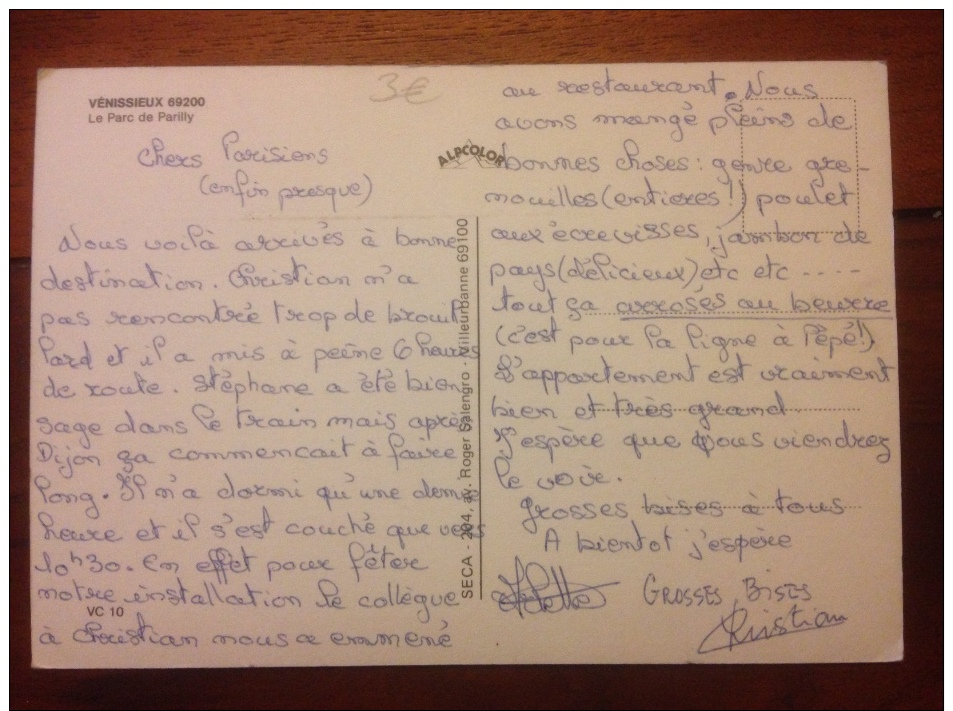 VÉNISSIEUX 69200
Le Parc de Parilly
3€
ALPCOLOR
Chers Parisiens
(enfin presque)
Nous voilà arrivés à bonne
destination. Christian n'a
pas rencontré trop de brouil
lard et il a mis à peine 6 heures
de route. Stéphane a été bien
sage dans le train mais après
Dijon ça commencait à faire
long. Il n'a dormi qu'une demi
heure et il s'est couché que vers
10h30. En effet pour fêter
notre installation le collègue
à Christian nous a emmené
VC 10
SECA - 204, av. Roger Salengro - Villeurbanne 69100
au restaurant. Nous
avons mangé pleins de
bonnes choses : genre gre-
nouilles (entières !) poulet
aux écrevisses, jambon de
pays (délicieux) etc etc ....
tout ça arrosés au beurre
(c'est pour la ligne à Pépé!)
L'appartement est vraiment
bien et très grand
J'espère que vous viendrez
le voir.
Grosses bises à tous
A bientot j'espère
GROSSES BISES
Christian